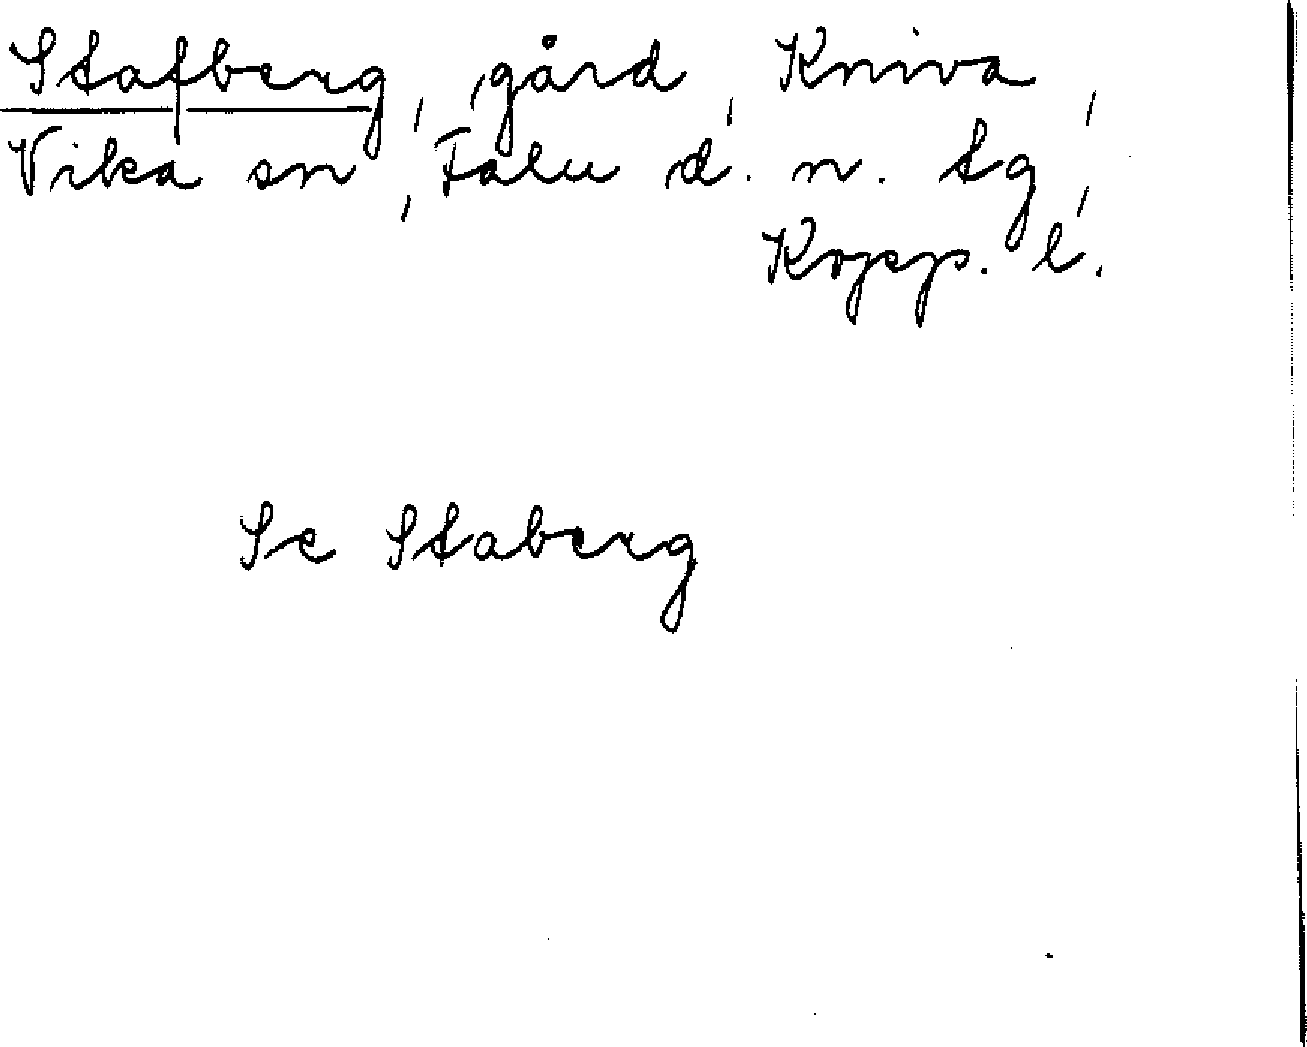 Stafberg, gård, Kniva,
Vika sn, Falu d. n. tg,
Kopp. l.
Se Staberg